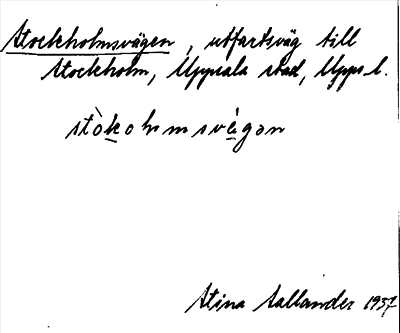 Stockholmsvägen, utfartsväg till
Stockholm, Uppsala stad, Upps. l.
stòkolmsvägən
Stina Sallander 1937